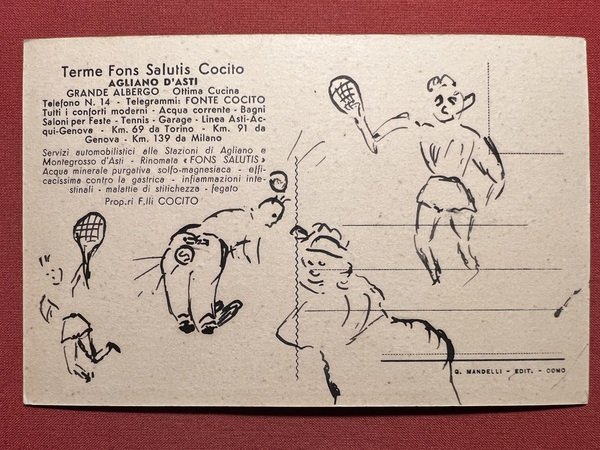 Terme Fons Salutis Cocito
AGLIANO D'ASTI
GRANDE ALBERGO - Ottima Cucina
Telefono N. 14 - Telegrammi: FONTE COCITO
Tutti i conforti moderni - Acqua corrente - Bagni
Saloni per Feste - Tennis - Garage - Linea Asti-Ac-
qui-Genova - Km. 69 da Torino - Km. 91 da
Genova - Km. 139 da Milano
Servizi automobilistici alle Stazioni di Agliano e
Montegrosso d'Asti - Rinomata «FONS SALUTIS»
Acqua minerale purgativa solfo-magnesiaca - effi-
cacissima contro la gastrica - infiammazioni inte-
stinali - malattie di stitichezza - fegato
Prop.ri F.lli COCITO
G. MANDELLI - EDIT. - COMO